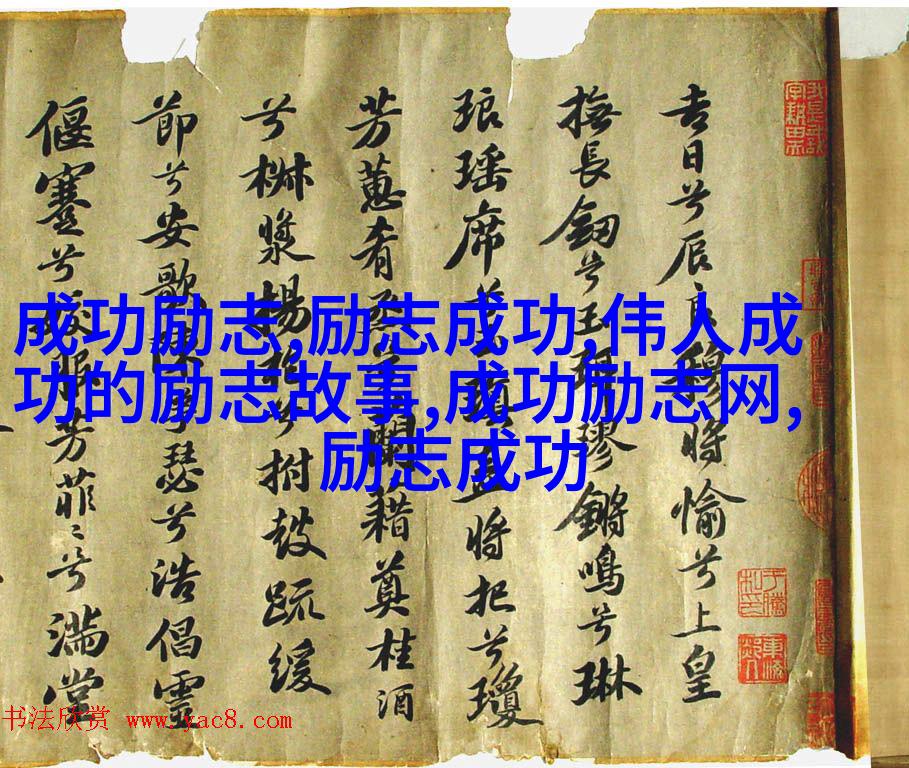 吉日兮辰良穆將愉兮上皇
撫長劒兮玉珥璆鏘鳴兮琳
琅瑶席兮玉瑱盍將把兮瓊
芳蕙肴烝兮蘭藉奠桂酒
兮椒漿揚枹兮拊鼓疏緩
節兮安歌陳竽瑟兮浩倡靈
偃蹇兮姣服芳菲〻兮滿堂
成功励志,励志成功,伟人成
功的励志故事,成功励志网,
励志成功
书法欣赏 www.yac8.com